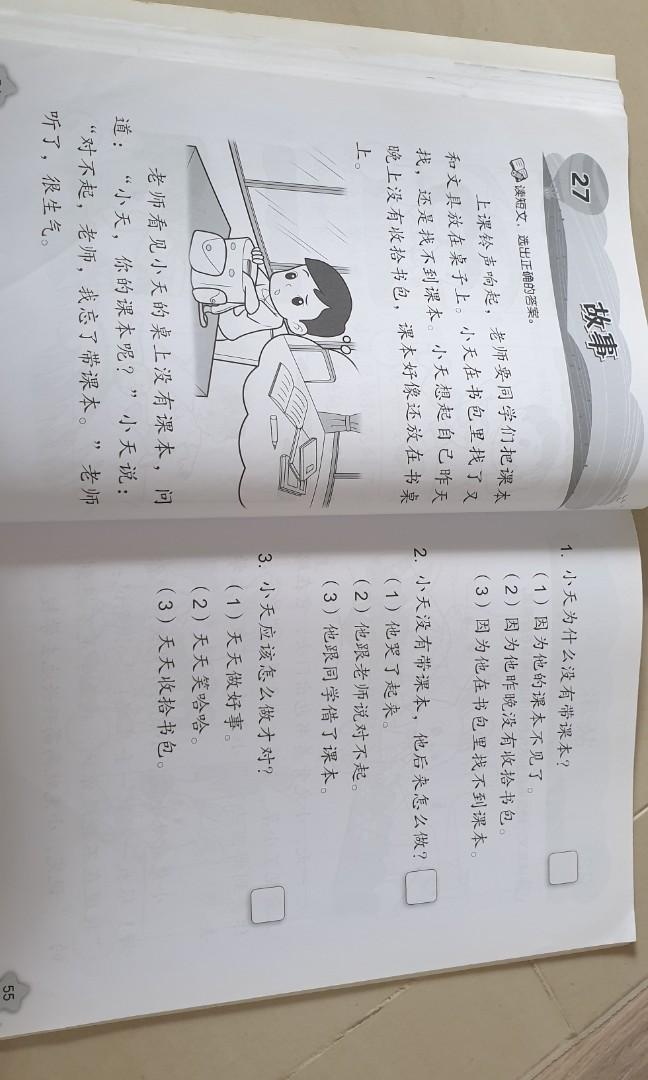 27
故事
读短文，选出正确的答案。
上课铃声响起，老师要同学们把课本
和文具放在桌子上。小天在书包里找了又
找，还是找不到课本。小天想起自己昨天
晚上没有收拾书包，课本好像还放在书桌
上。
老师看见小天的桌上没有课本，问
道：“小天，你的课本呢？”小天说：
“对不起，老师，我忘了带课本。”老师
听了，很生气。
1. 小天为什么没有带课本？
（1）因为他的课本不见了。
（2）因为他昨晚没有收拾书包。
（3）因为他在书包里找不到课本。
2. 小天没有带课本，他后来怎么做？
（1）他哭了起来。
（2）他跟老师说对不起。
（3）他跟同学借了课本。
3. 小天应该怎么做才对？
（1）天天做好事。
（2）天天笑哈哈。
（3）天天收拾书包。
55